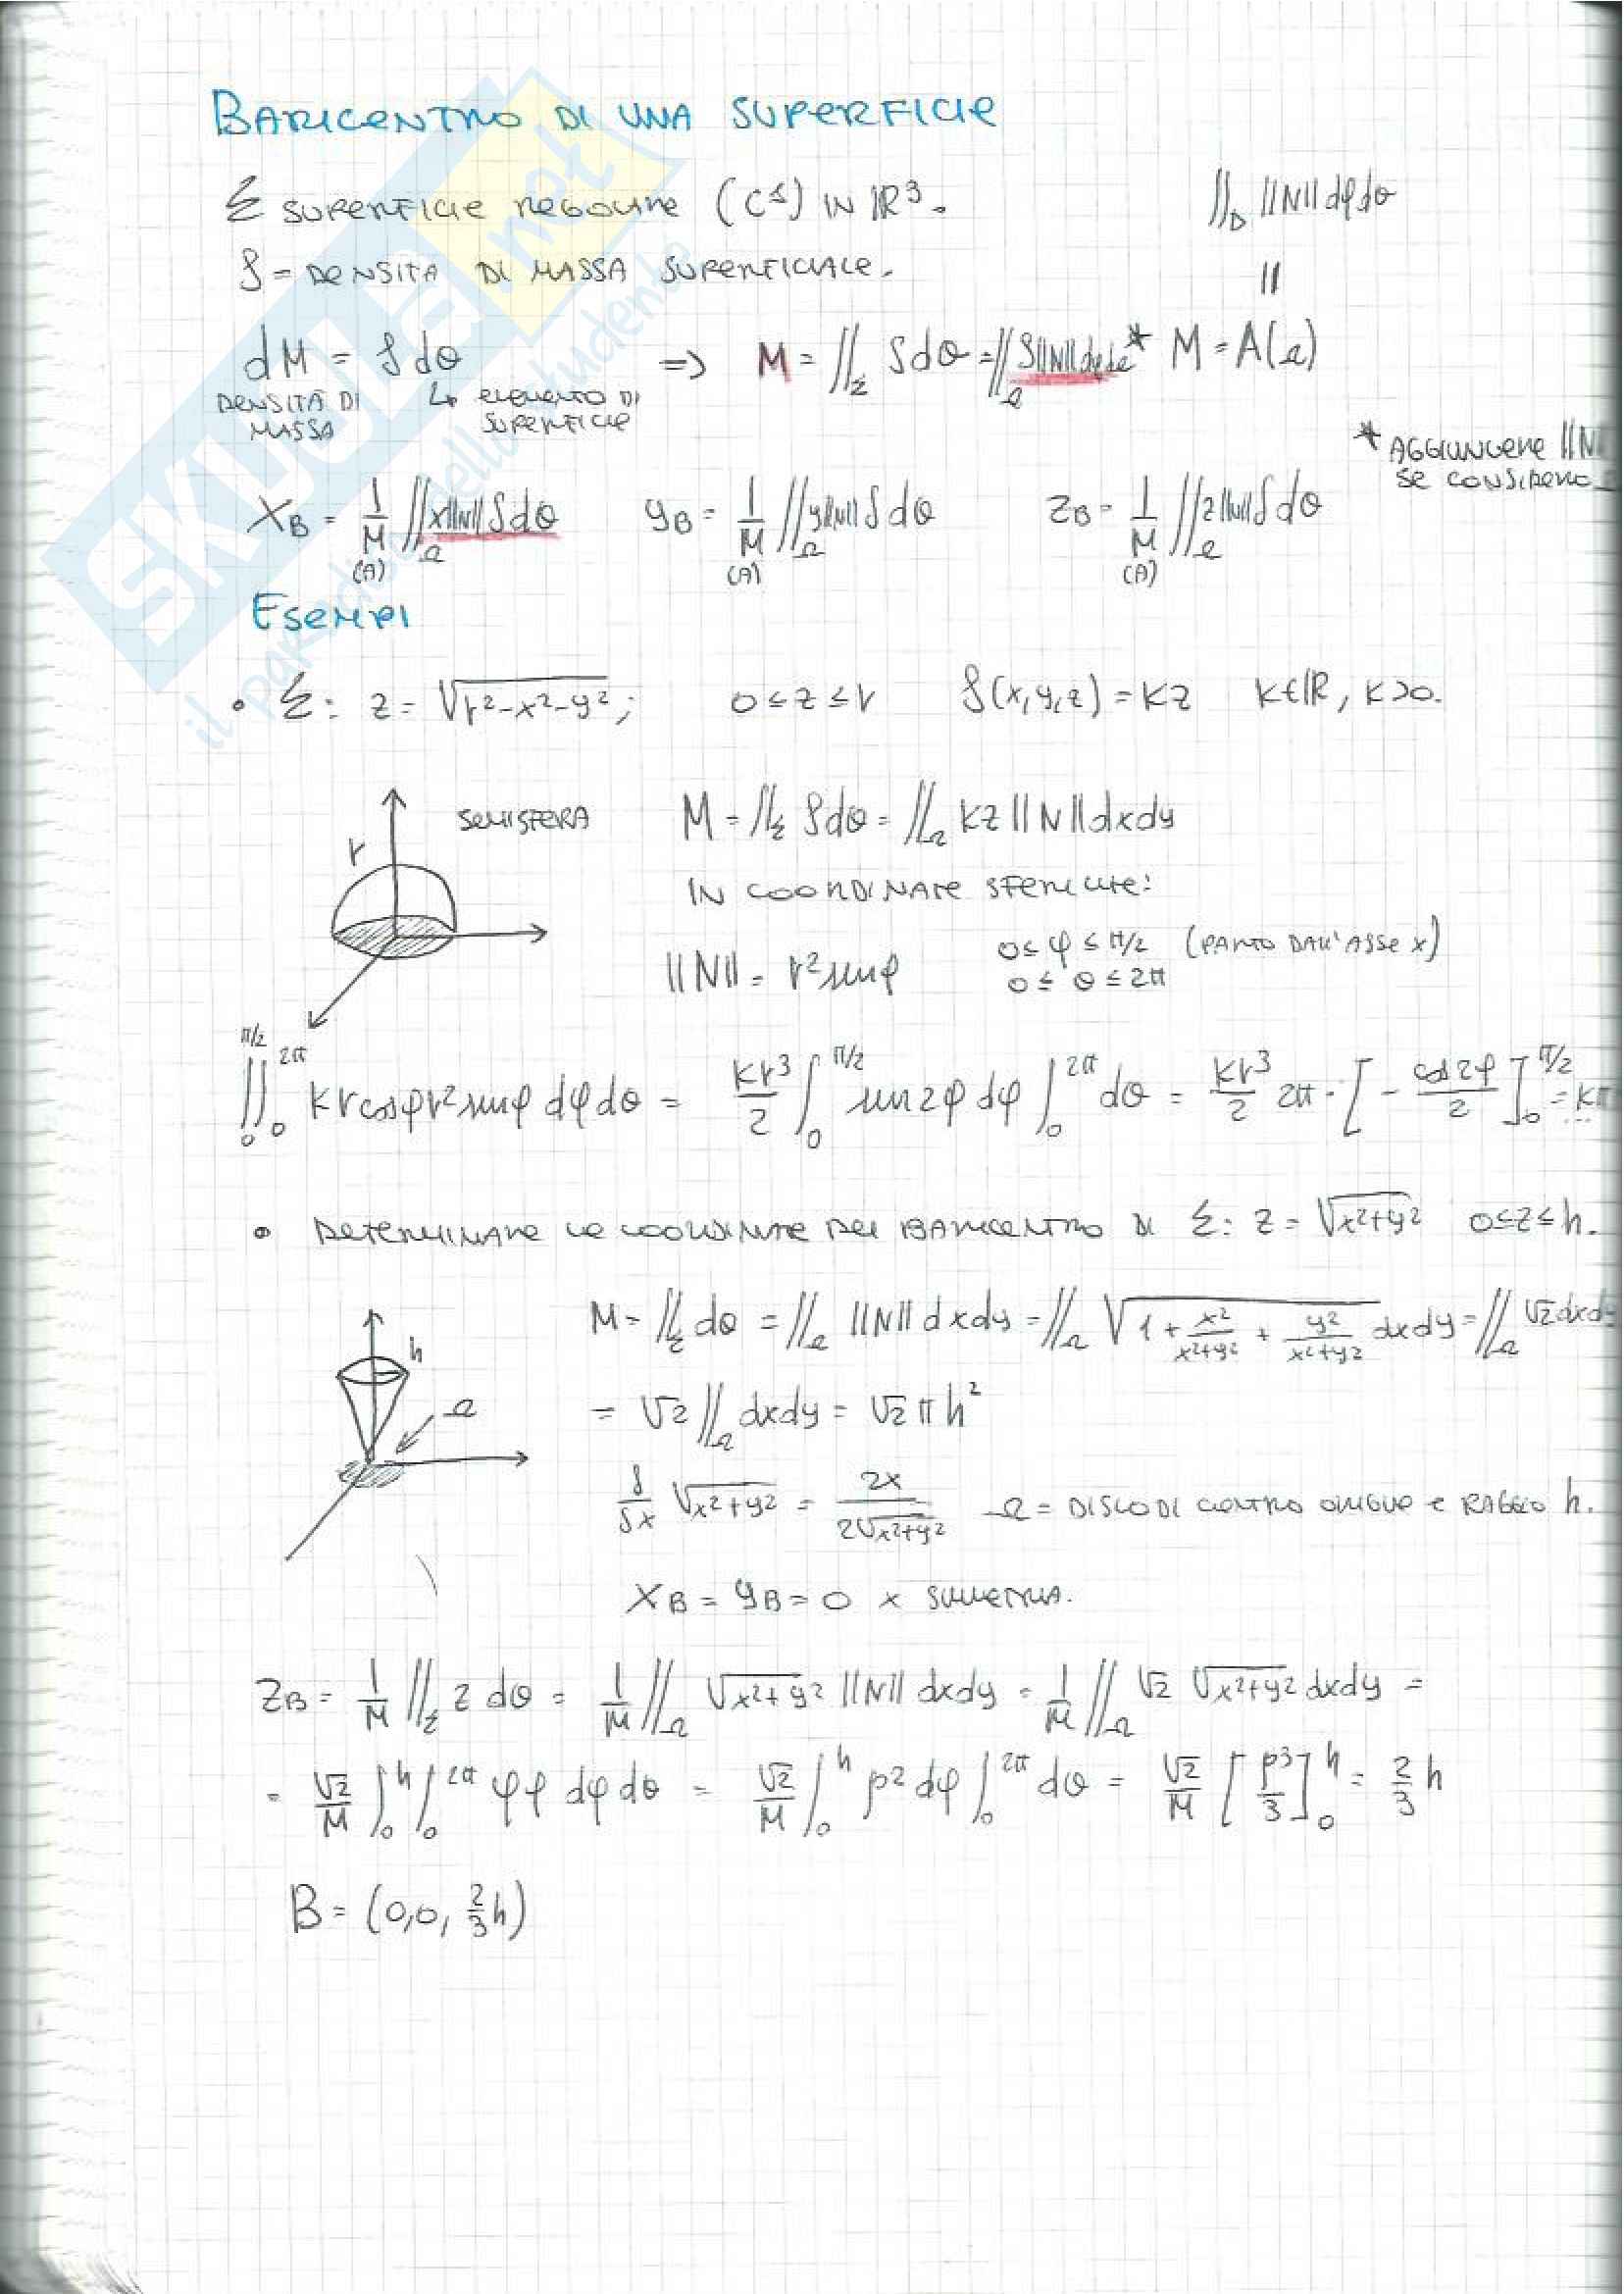 BARICENTRO DI UNA SUPERFICIE
Σ SUPERFICIE REGOLARE (C¹) IN ℝ³.
∬_D ||N|| dφdθ
ρ = DENSITÀ DI MASSA SUPERFICIALE.
||
dM = ρ dσ ⇒ M = ∬_Σ ρ dσ = ∬_Ω ρ||N|| dφdθ * M = A(Ω)
DENSITÀ DI MASSA ↳ ELEMENTO DI SUPERFICIE
* AGGIUNGERE ||N
SE CONSIDERO
X_B = 1/M ∬_Ω x||N|| ρ dσ y_B = 1/M ∬_Ω y||N|| ρ dσ z_B = 1/M ∬_Ω z||N|| ρ dσ
(A) (A) (A)
ESEMPI
• Σ: z = √(r²-x²-y²); 0 ≤ z ≤ r ρ(x,y,z) = kz k∈ℝ, k>0.
SEMISFERA M = ∬_Σ ρ dσ = ∬_Ω kz ||N|| dxdy
r
IN COORDINATE SFERICHE:
||N|| = r² sinφ 0 ≤ φ ≤ π/2 (PARTO DALL'ASSE X)
0 ≤ θ ≤ 2π
∬₀^{π/2} ₀^{2π} kr cosφ r² sinφ dφdθ = kr³/2 ∫₀^{π/2} sin2φ dφ ∫₀^{2π} dθ = kr³/2 2π · [- cos2φ/2]₀^{π/2} = kπ
• DETERMINARE LE COORDINATE DEL BARICENTRO DI Σ: z = √(x²+y²) 0≤z≤h.
M = ∬_Σ dσ = ∬_Ω ||N|| dxdy = ∬_Ω √(1 + x²/(x²+y²) + y²/(x²+y²)) dxdy = ∬_Ω √2 dxd
h
Ω
= √2 ∬_Ω dxdy = √2 π h²
δ/δx √(x²+y²) = 2x/(2√(x²+y²)) Ω = DISCO DI CENTRO ORIGINE E RAGGIO h.
X_B = y_B = 0 x SIMMETRIA.
z_B = 1/M ∬_Σ z dσ = 1/M ∬_Ω √(x²+y²) ||N|| dxdy = 1/M ∬_Ω √2 √(x²+y²) dxdy =
= √2/M ∫₀^h ∫₀^{2π} φφ dφ dθ = √2/M ∫₀^h ρ² dφ ∫₀^{2π} dθ = √2/M [ρ³/3]₀^h = 2/3 h
B = (0,0, 2/3 h)
SKUOLA.net
il paradiso dello studente